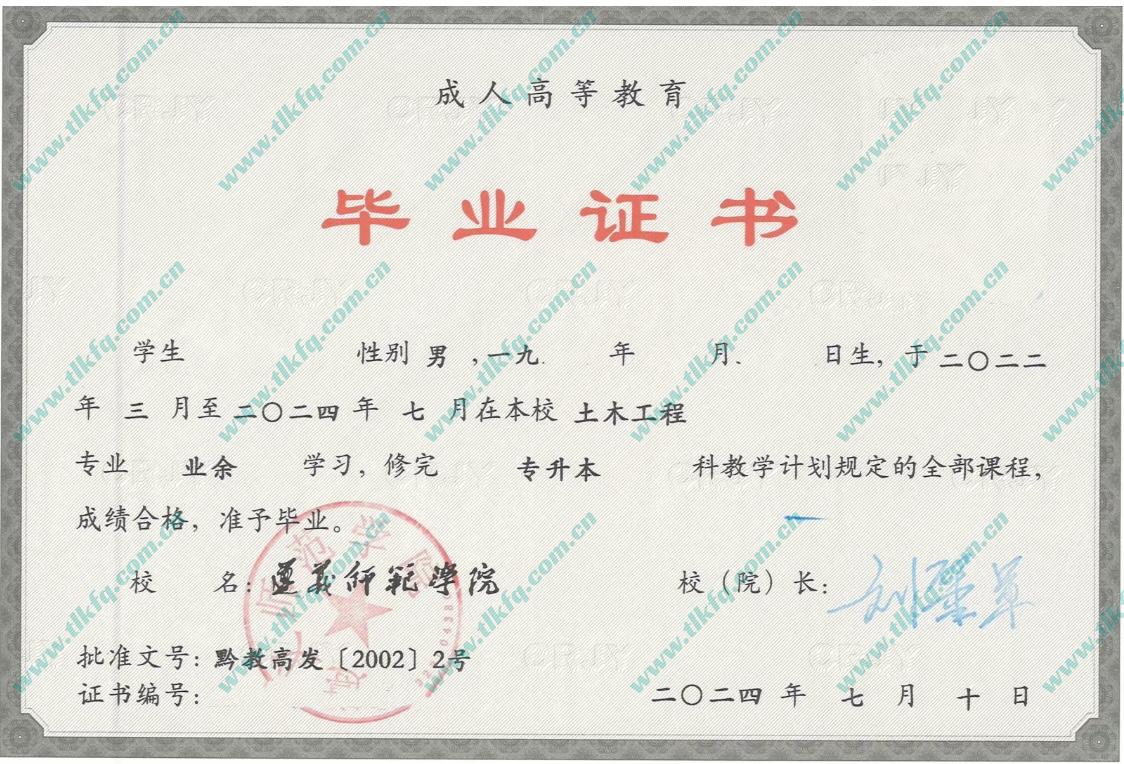 成人高等教育
毕业证书
学生 性别 男 ,一九 年 月 日生, 于 二〇二二
年 三 月至 二〇二四 年 七 月在本校 土木工程
专业 业余 学习, 修完 专升本 科教学计划规定的全部课程,
成绩合格, 准予毕业。
校 名: 遵义师范学院 校（院）长:
批准文号: 黔教高发〔2002〕2号
证书编号: 二〇二四 年 七 月 十 日
www.tlkfq.com.cn
CRJY